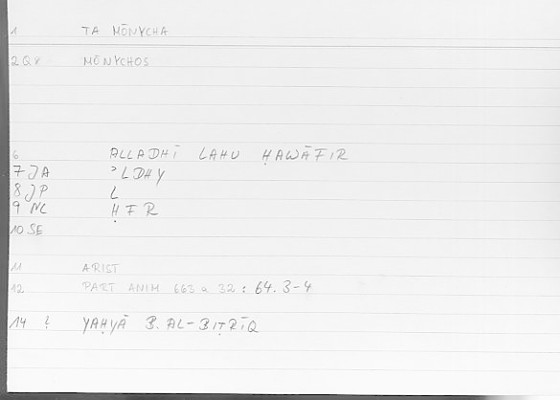 1 TA MŌNYCHA
2 QU MŌNYCHOS
6 ALLADHĪ LAHU ḤAWĀFIR
7 JA ʾLDHY
8 JP L
9 NL ḤFR
10 SE
11 ARIST
12 PART ANIM 663 a 32 : 64.3-4
14 YAḤYĀ B. AL-BIṬRĪQ